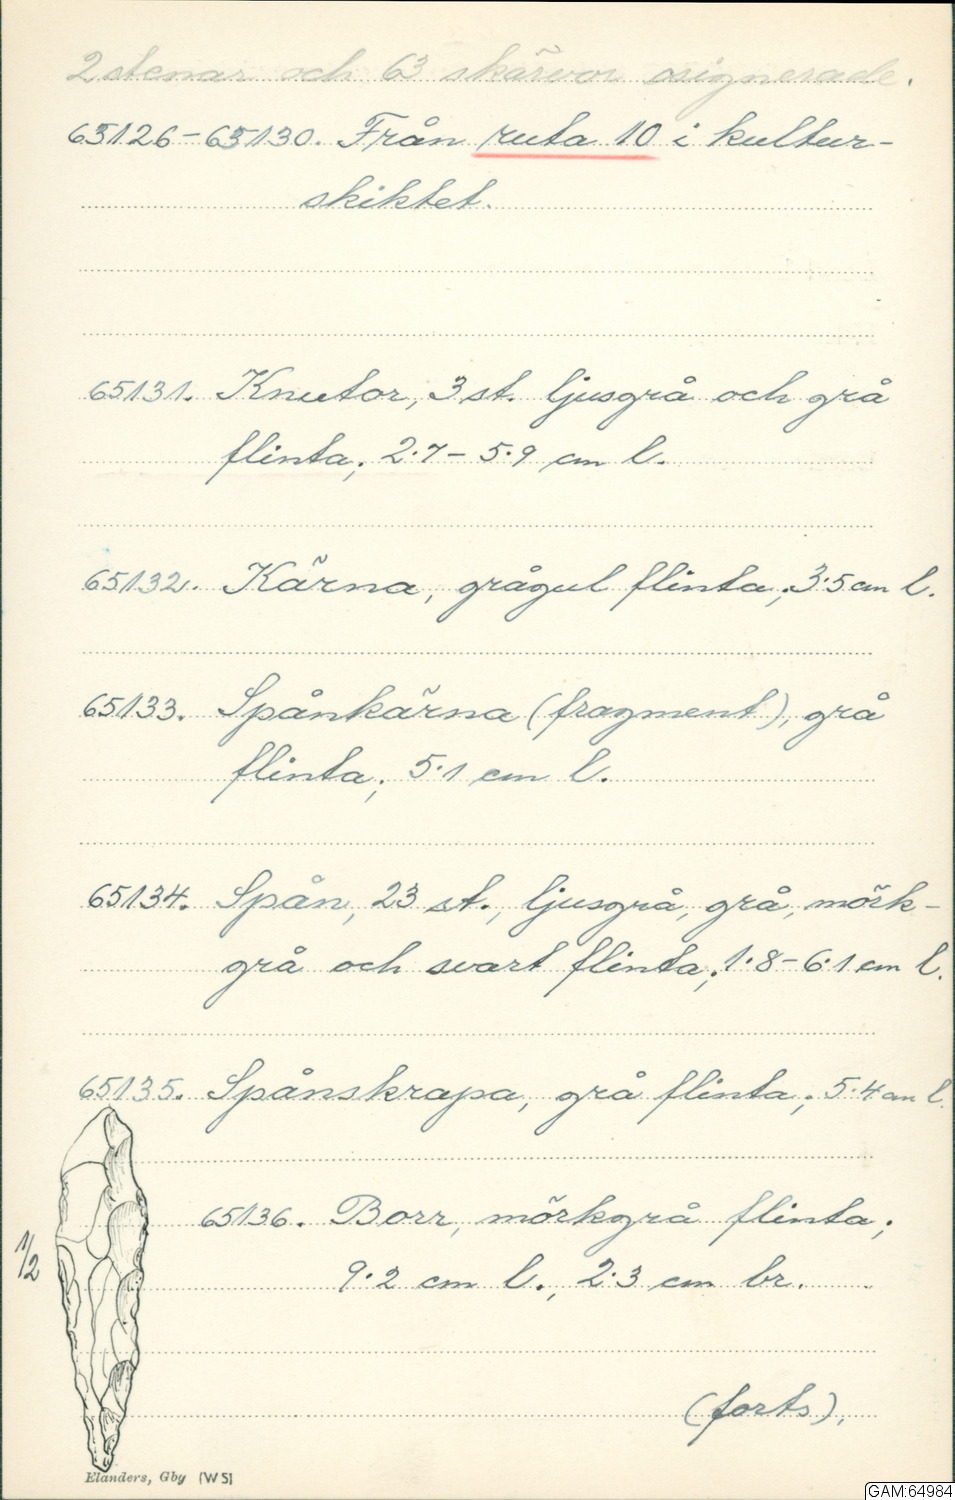 2 stenar och 63 skärvor osignerade.
65126-65130. Från ruta 10 i kultur-
skiktet.
65131. Knutor, 3 st. ljusgrå och grå
flinta; 2.7 - 5.9 cm l.
65132. Kärna, grågul flinta; 3.5 cm l.
65133. Spånkärna (fragment), grå
flinta; 5.1 cm l.
65134. Spån, 23 st., ljusgrå, grå, mörk-
grå och svart flinta; 1.8-6.1 cm l.
65135. Spånskrapa, grå flinta; 5.4 cm l.
65136. Borr, mörkgrå flinta;
1/2
9.2 cm l., 2.3 cm br.
(forts).
Elanders, Gby (W 5)
GAM:64984